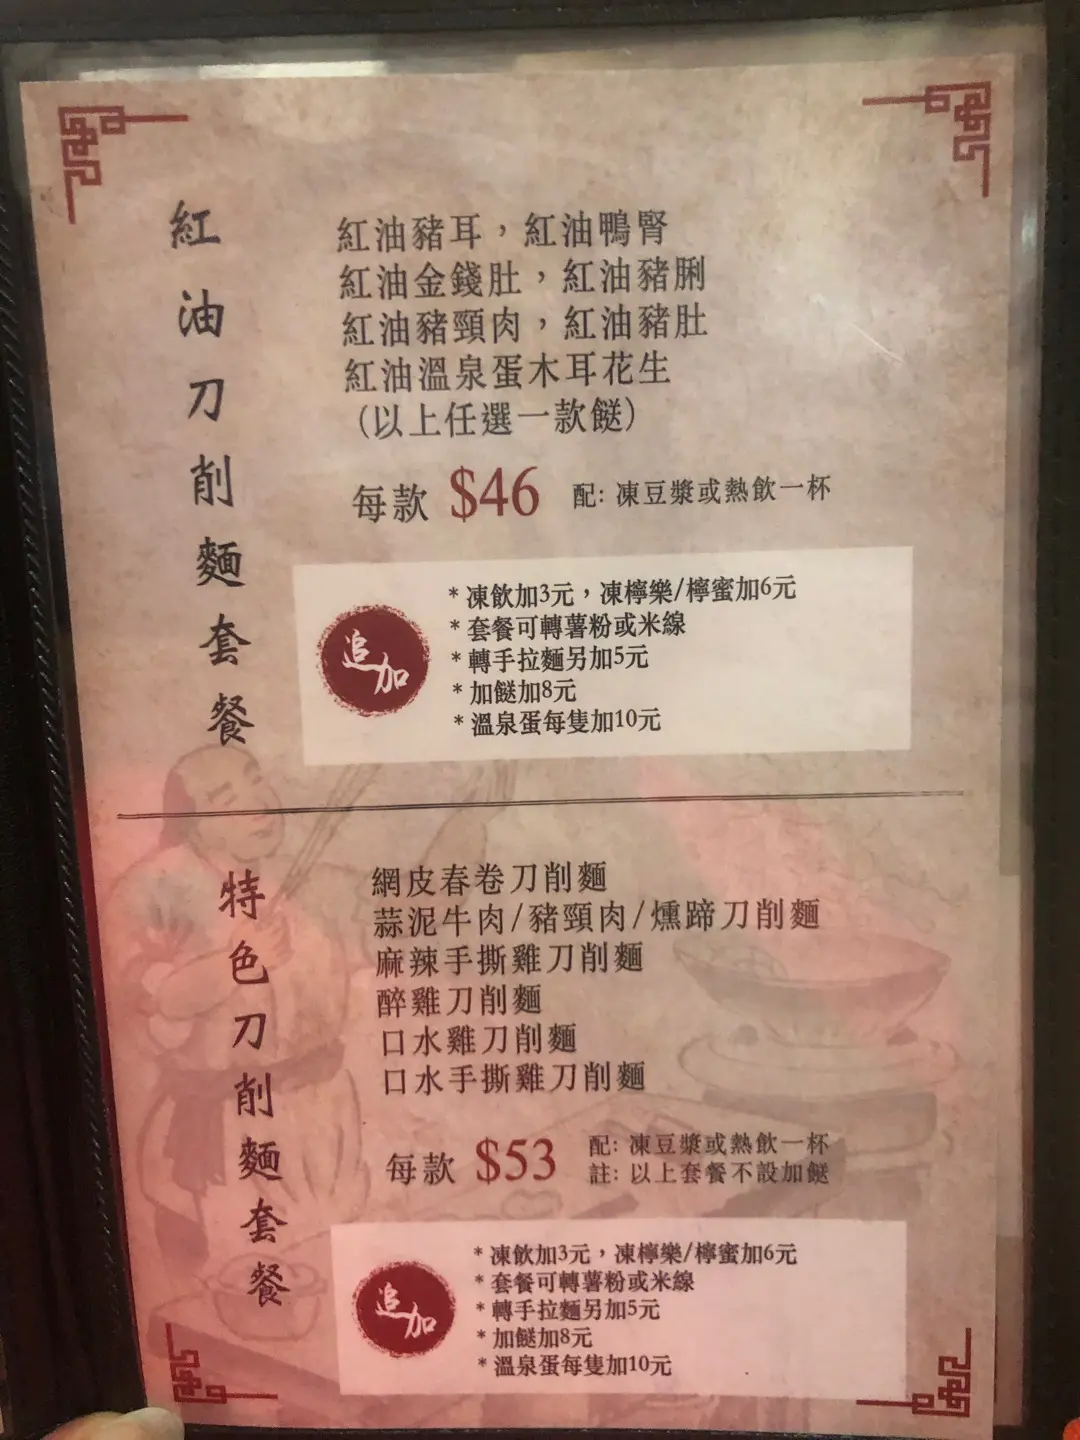 紅油刀削麵套餐
紅油豬耳，紅油鴨腎
紅油金錢肚，紅油豬脷
紅油豬頸肉，紅油豬肚
紅油溫泉蛋木耳花生
（以上任選一款餸）
每款 $46 配: 凍豆漿或熱飲一杯
追加
* 凍飲加3元，凍檸樂/檸蜜加6元
* 套餐可轉薯粉或米線
* 轉手拉麵另加5元
* 加餸加8元
* 溫泉蛋每隻加10元
特色刀削麵套餐
網皮春卷刀削麵
蒜泥牛肉/豬頸肉/燻蹄刀削麵
麻辣手撕雞刀削麵
醉雞刀削麵
口水雞刀削麵
口水手撕雞刀削麵
每款 $53 配: 凍豆漿或熱飲一杯
註: 以上套餐不設加餸
追加
* 凍飲加3元，凍檸樂/檸蜜加6元
* 套餐可轉薯粉或米線
* 轉手拉麵另加5元
* 加餸加8元
* 溫泉蛋每隻加10元